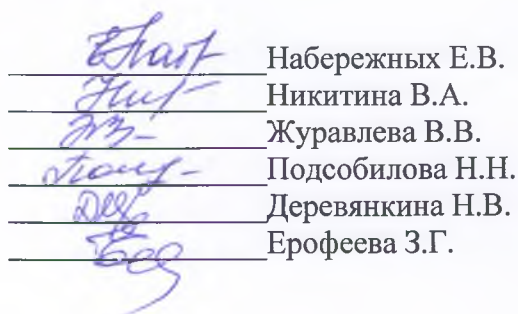 Набережных Е.В.
Никитина В.А.
Журавлева В.В.
Подсобилова Н.Н.
Деревянкина Н.В.
Ерофеева З.Г.